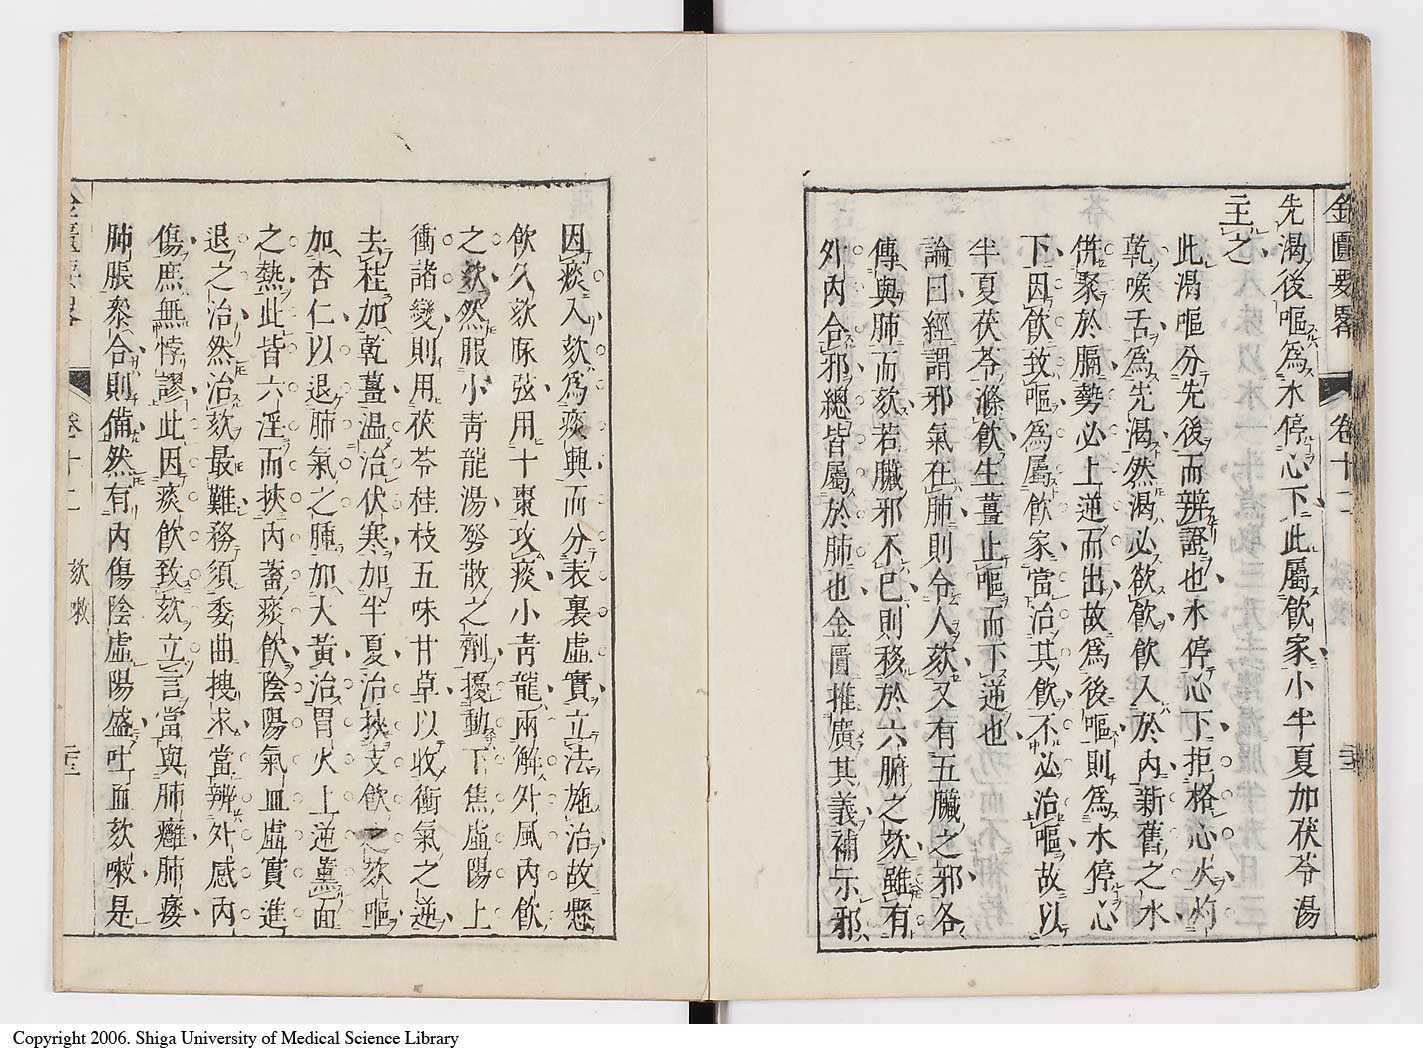 金匱要畧 卷十二
先渴後嘔爲水停心下此屬飮家小半夏加茯苓湯
主之
此渴嘔分先後而辨證也水停心下拒格心火灼
乾喉舌爲先渴然渴必欲飮飮入於內新舊之水
倂聚於膈勢必上逆而出故爲後嘔則爲水停心
下因飮致嘔爲屬飮家當治其飮不必治嘔故以
半夏茯苓滌飮生薑止嘔而下逆也
論曰經謂邪氣在肺則令人欬又有五臟之邪各
傳與肺而欬若臟邪不已則移於六腑之欬雖有
外內合邪總皆屬於肺也金匱推廣其義補示邪
因痰入欬爲痰與而分表裏虛實立法施治故懸
飮久欬脈弦用十棗攻痰小靑龍兩解外風內飮
之欬然服小靑龍湯發散之劑擾動下焦虛陽上
衝諸變則用茯苓桂枝五味甘草以收衝氣之逆
去桂加乾薑温治伏寒加半夏治挾支飮之欬嘔
加杏仁以退肺氣之腫加大黃治胃火上逆薰面
之熱此皆六淫而挾內蓄痰飮陰陽氣血虛實進
退之治然治欬最難務須委曲搜求當辨外感內
傷庶無悖謬此因痰飮致欬立言當與肺癰肺痿
肺脹叅合則備然有內傷陰虛陽盛吐血欬嗽是
卷十二 欬嗽 二十三
Copyright 2006. Shiga University of Medical Science Library